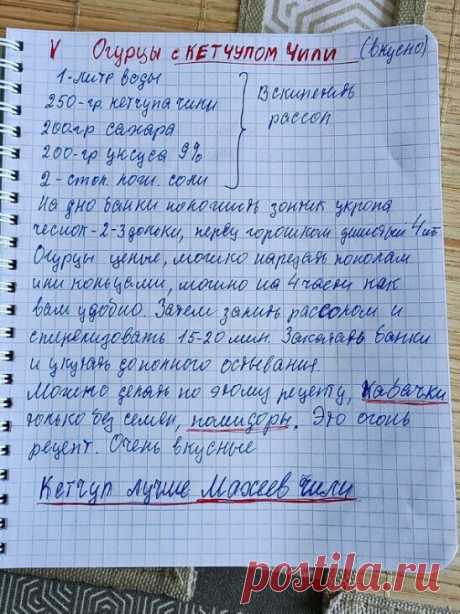 V Огурцы с КЕТЧУПОМ Чили (вкусно)
1-литр воды
250-гр. кетчупа чили
200гр сахара
200-гр уксуса 9%
2-стол. лож. соли
Вскипетить
рассол
На дно банки положить зонтик укропа
чеснок-2-3дольки, перец горошком душистый 4шт
Огурцы целые, можно нарезать пополам
или кольцами, можно на 4 части как
вам удобно. Затем залить рассолом и
стерелизовать 15-20мин. Закатать банки
и укутать до полного остывания.
Можно делать по этому рецепту, кабачки
только без семян, помидоры. Это огонь
рецепт. Очень вкусные
Кетчуп лучше Махеев Чили
postila.ru